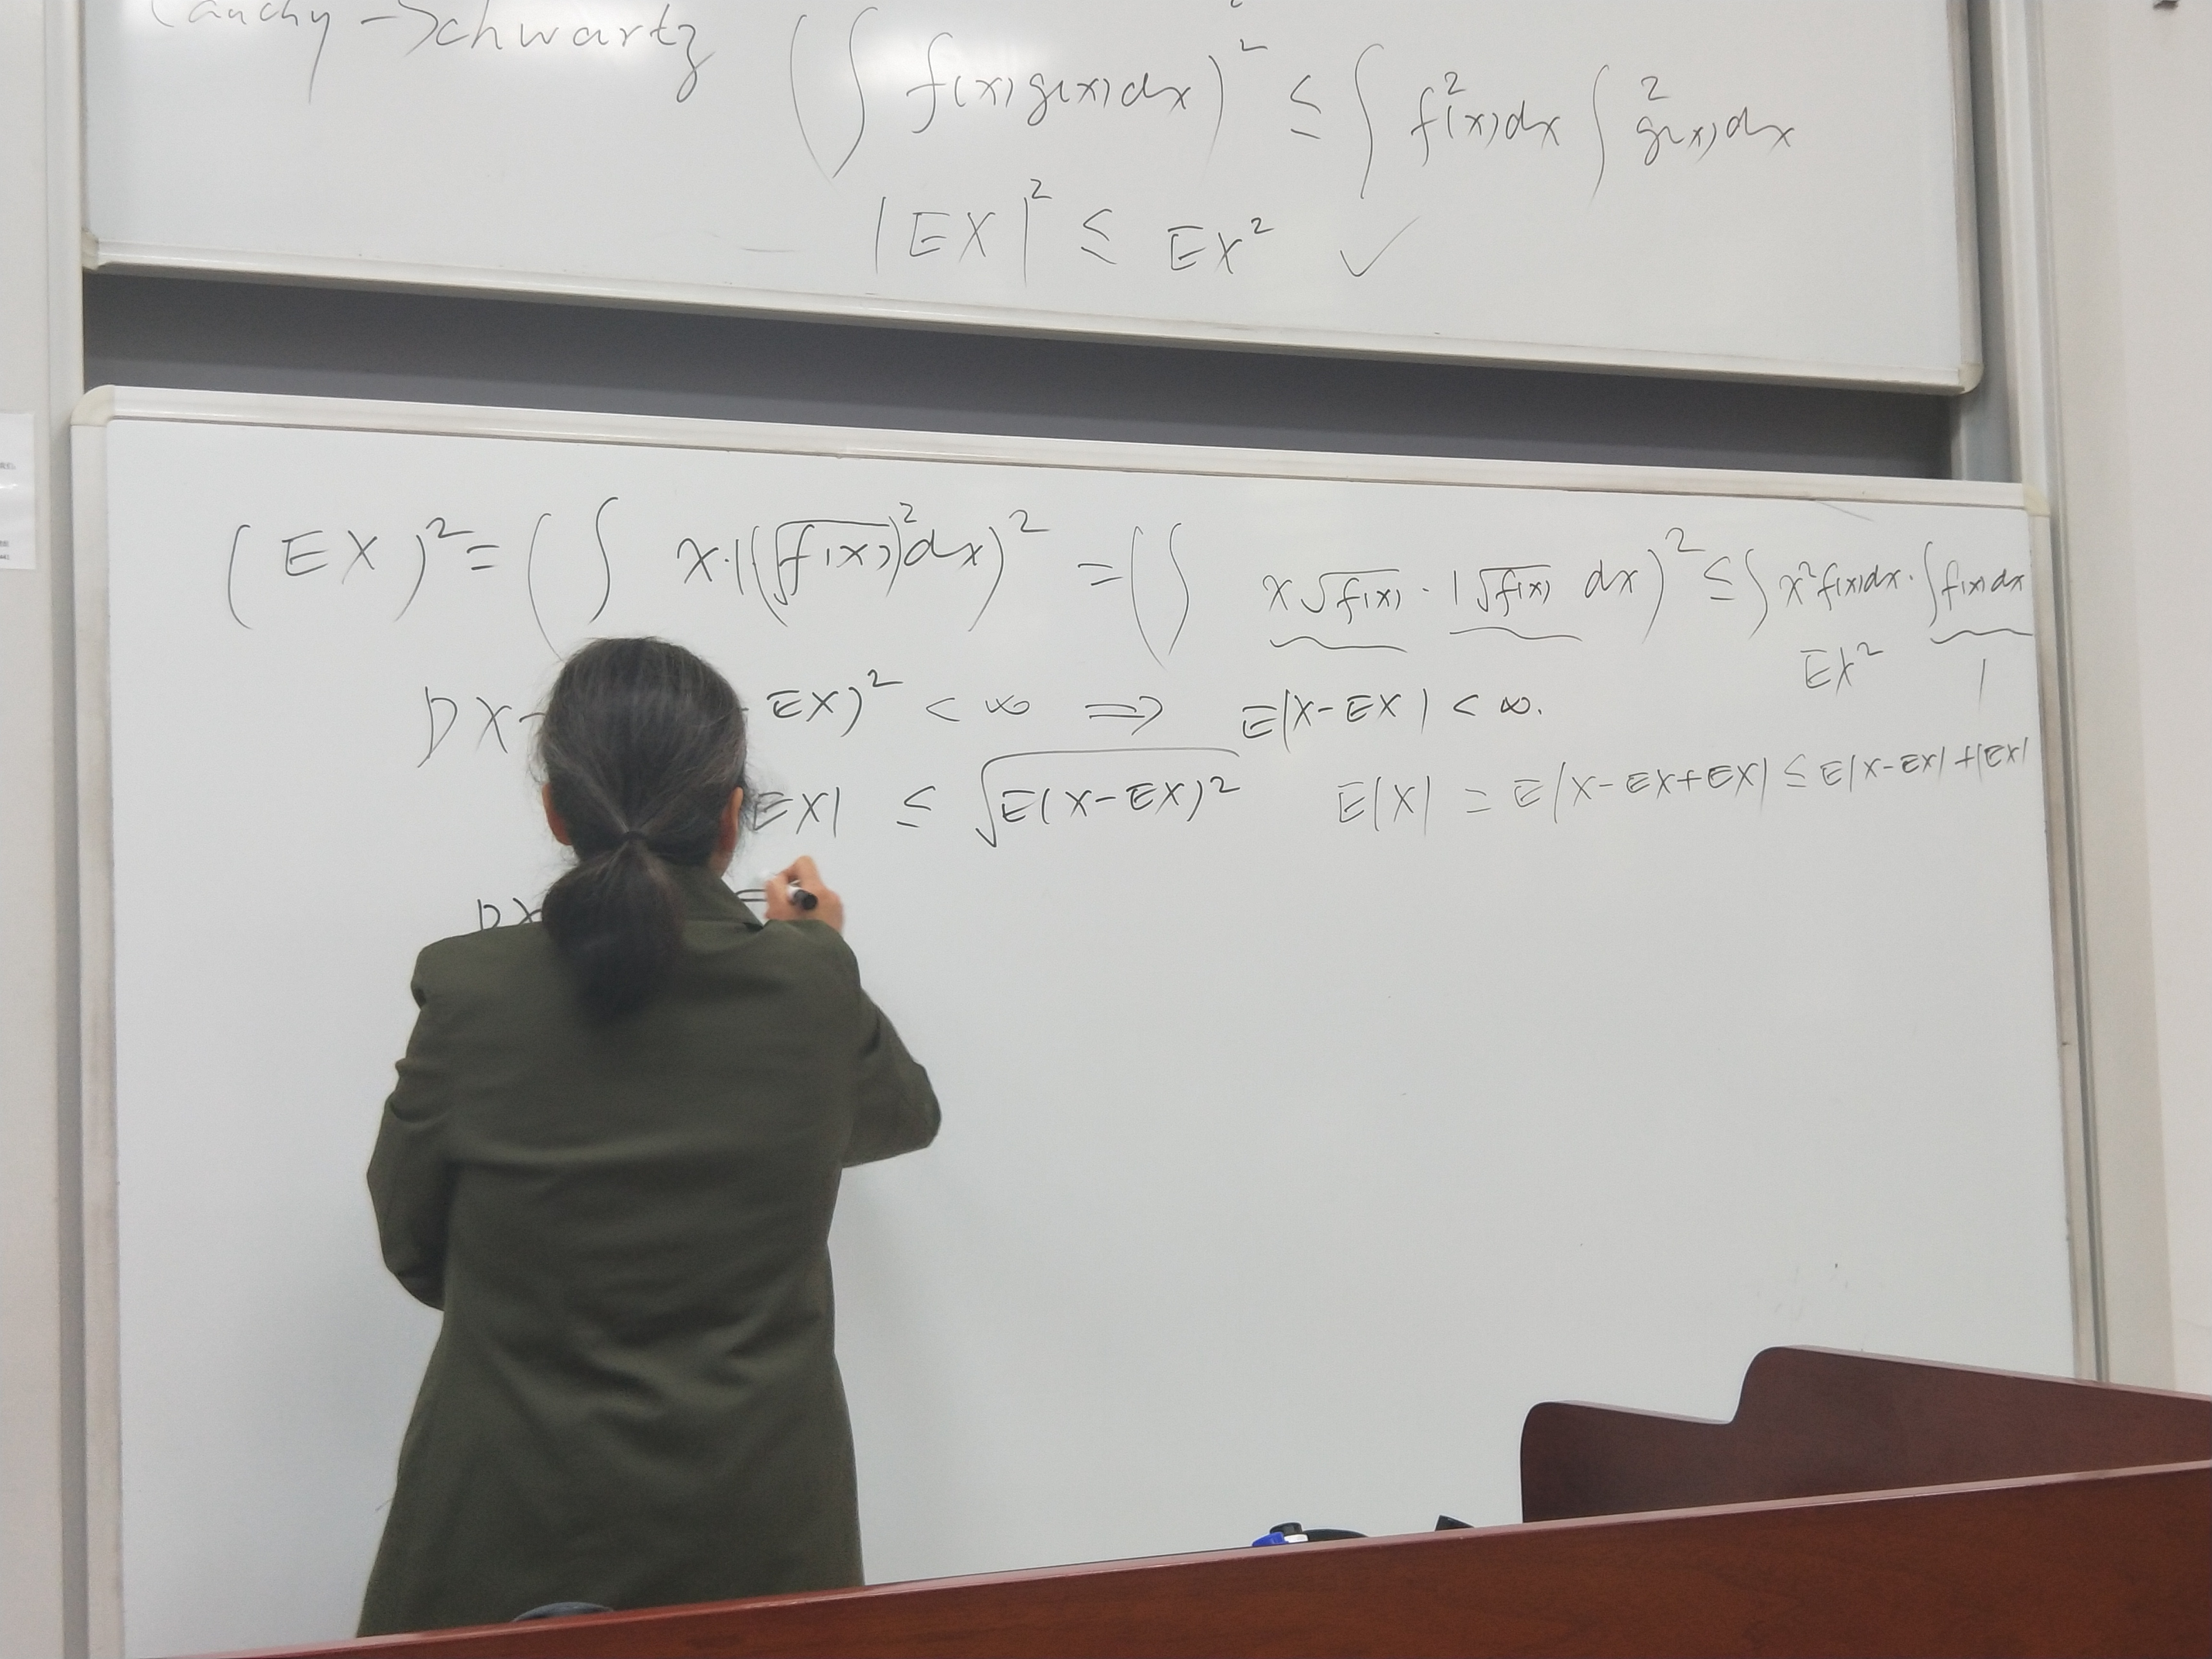 Cauchy-Schwartz (∫ f(x)g(x)dx)² ≤ ∫ f²(x)dx ∫ g²(x)dx
|EX|² ≤ EX² ✓
(EX)² = (∫ x·1(√f(x))²dx)² = (∫ x√f(x) · 1√f(x) dx)² ≤ ∫ x²f(x)dx · ∫ f(x)dx
EX² 1
DX EX)² < ∞ ⇒ E|X-EX| < ∞.
EX| ≤ √E(X-EX)² E|X| = E|X-EX+EX| ≤ E|X-EX| + |EX|
DX =